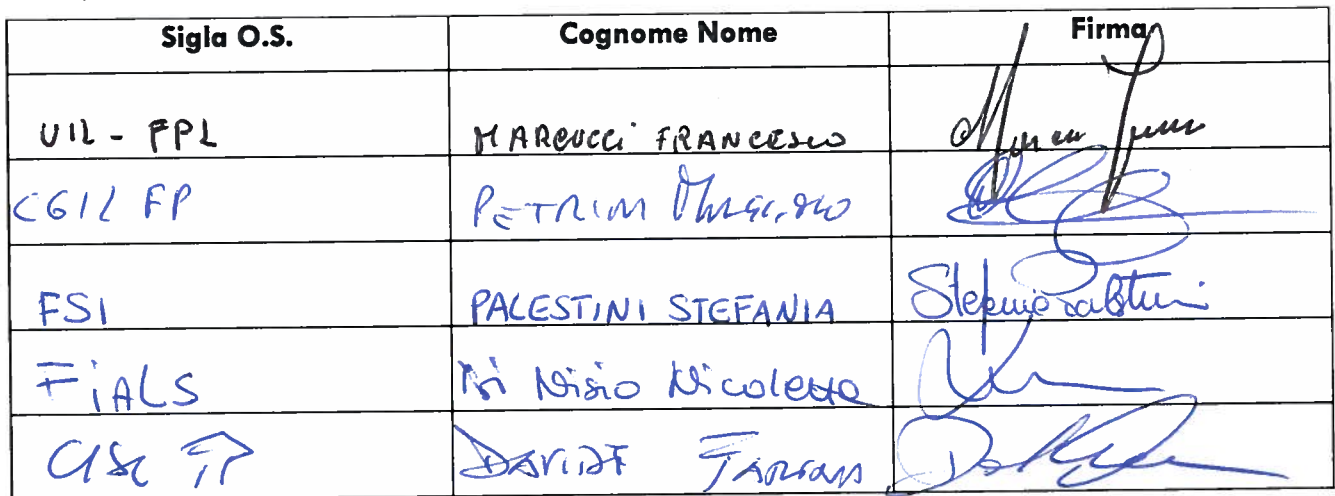 Sigla O.S. Cognome Nome Firma
UIL - FPL MARCUCCI FRANCESCO
CGIL FP PETRINI
FSI PALESTINI STEFANIA Stefania Palestini
FiALS Di Nisio Nicoletta
CISL FP DAVIDE